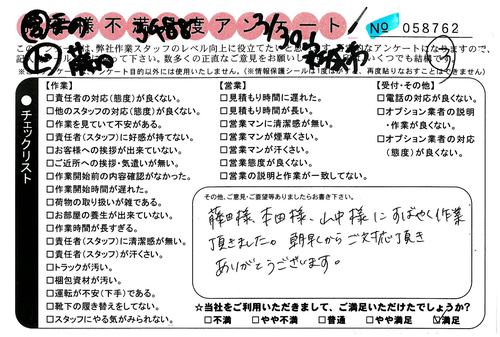 様不満度アンケート
№ 058762
このアンケートは、弊社作業スタッフのレベル向上に役立てたいと思
なアンケートになりますので、
数多くの正直なご意見をお願い
いくつでも結構です。
アンケート目的以外には使用いたしません。(※情報保護シール
再度貼りなおすことはできません)
チェックリスト
【作業】
□責任者の対応(態度)が良くない。
□他のスタッフの対応(態度)が良くない。
□作業を見ていて不安がある。
□責任者(スタッフ)に好感が持てない。
□お客様への挨拶が出来ていない。
□ご近所への挨拶・気遣いが無い。
□作業開始前の内容確認がなかった。
□作業開始時間が遅れた。
□荷物の取り扱いが雑である。
□お部屋の養生が出来ていない。
□作業時間が長すぎる。
□責任者(スタッフ)に清潔感が無い。
□責任者(スタッフ)が汗くさい。
□トラックが汚い。
□梱包資材が汚い。
□運転が不安(下手)である。
□靴下の履き替えをしてない。
□スタッフにやる気がみられない。
【営業】
□見積もり時間に遅れた。
□見積もり時間が長い。
□営業マンに清潔感が無い。
□営業マンが煙草くさい。
□営業マンが汗くさい。
□営業態度が良くない。
□営業の説明と作業が一致してない。
【受付・その他】
□電話の対応が良くない。
□オプション業者の説明
・作業が良くない。
□オプション業者の対応
(態度)が良くない。
その他、ご意見・ご要望等ありましたらお書き下さい。
藤田様、本田様、山中様にすばやく作業
頂きました。朝早くからご対応頂き
ありがとうございます。
☆当社をご利用いただきまして、ご満足いただけたでしょうか?
□不満 □やや不満 □普通 □やや満足 ☑満足